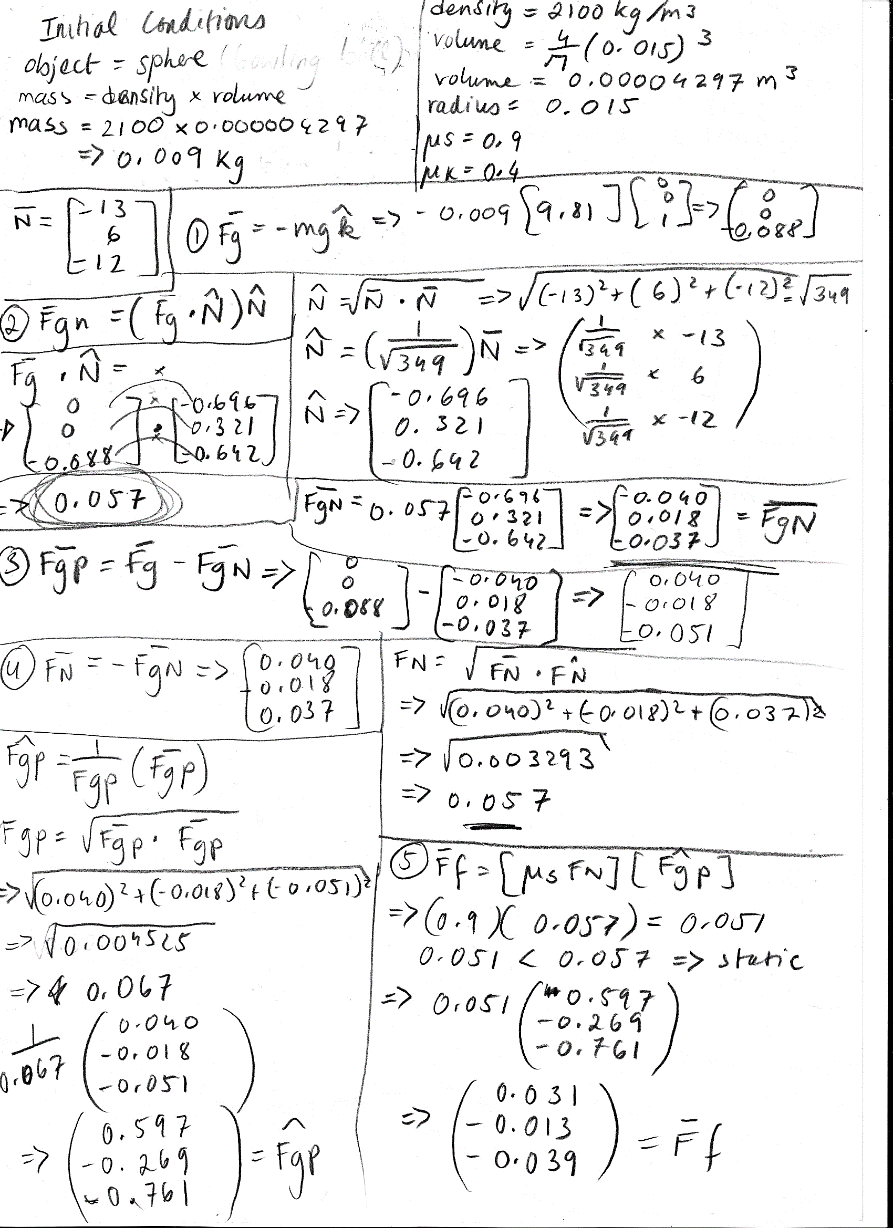 Initial Conditions
object = sphere (bowling ball)
mass = density × volume
mass = 2100 × 0.000004297
=> 0.009 Kg
density = 2100 kg/m3
volume = 4/π (0.015)³
volume = 0.00004297 m³
radius = 0.015
μs = 0.9
μK = 0.4
N̄ = [-13 6 -12]
① F̄g = -mg k̂ => -0.009 [9.81] [0 0 1] => (0 0 -0.088)
② F̄gn = (F̄g · N̂) N̂
F̄g · N̂ =
[0 0 -0.088] · [-0.696 0.321 -0.642]
=> 0.057
N̂ = √N̄ · N̄ => √(-13)²+(6)²+(-12)² = √349
N̂ = (1/√349) N̄ => (1/√349 × -13 1/√349 × 6 1/√349 × -12)
N̂ => [-0.696 0.321 -0.642]
F̄gN = 0.057 [-0.696 0.321 -0.642] => [-0.040 0.018 -0.037] = F̄gN
③ F̄gp = F̄g - F̄gN => [0 0 -0.088] - [-0.040 0.018 -0.037] => [0.040 -0.018 -0.051]
④ F̄N = -F̄gN => [0.040 -0.018 0.037]
FN = √F̄N · F̂N
=> √(0.040)²+(-0.018)²+(0.037)²
=> √0.003293
=> 0.057
F̂gp = 1/Fgp (F̄gp)
Fgp = √F̄gp · F̄gp
=> √(0.040)²+(-0.018)²+(-0.051)²
=> √0.004525
=> 0.067
1/0.067 (0.040 -0.018 -0.051)
=> (0.597 -0.269 -0.761) = F̂gp
⑤ F̄f = [μs FN] [F̂gp]
=> (0.9)(0.057) = 0.051
0.051 < 0.057 => static
=> 0.051 (0.597 -0.269 -0.761)
=> (0.031 -0.013 -0.039) = F̄f